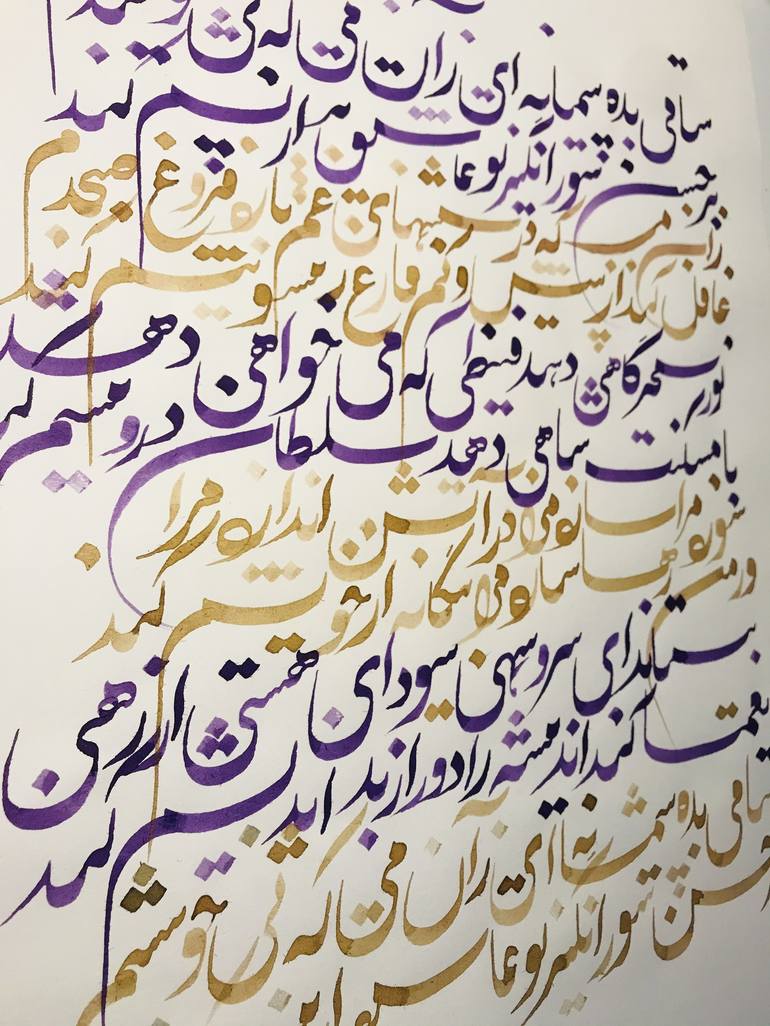 ساقی بده پیمانه ای زان می که بی
بر حسن شورانگیز تو عاشق تر از پیشم کند
زان می که در شبهای غم بارد فروغ صبحدم
غافل کند از بیش و کم فارغ ز تشویشم کند
نور سحرگاهی دهد فیضی که می خواهی دهد
با مسکنت شاهی دهد سلطان درویشم کند
سوزد مرا سازد مرا در آتش اندازد مرا
وز من رها سازد مرا بیگانه از خویشم کند
بستاند ای سرو سهی سودای هستی از رهی
یغما کند اندیشه را دور از بد اندیشم کند
ساقی بده پیمانه ای زان می که بی خویشم
حسن شورانگیز تو عاشق